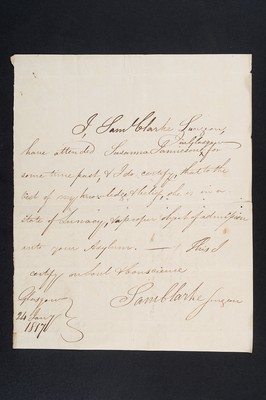 I, Saml Clarke Surgeon,
in Glasgow
have attended Susanna Jamieson, for
some time past, & I do certify, that to the
best of my knowledge & belief, she is in a
State of Lunacy, & a proper object of admission
into your Asylum. — This I
certify on soul & conscience
Glasgow
Saml Clarke Surgeon
24 Jany
1817